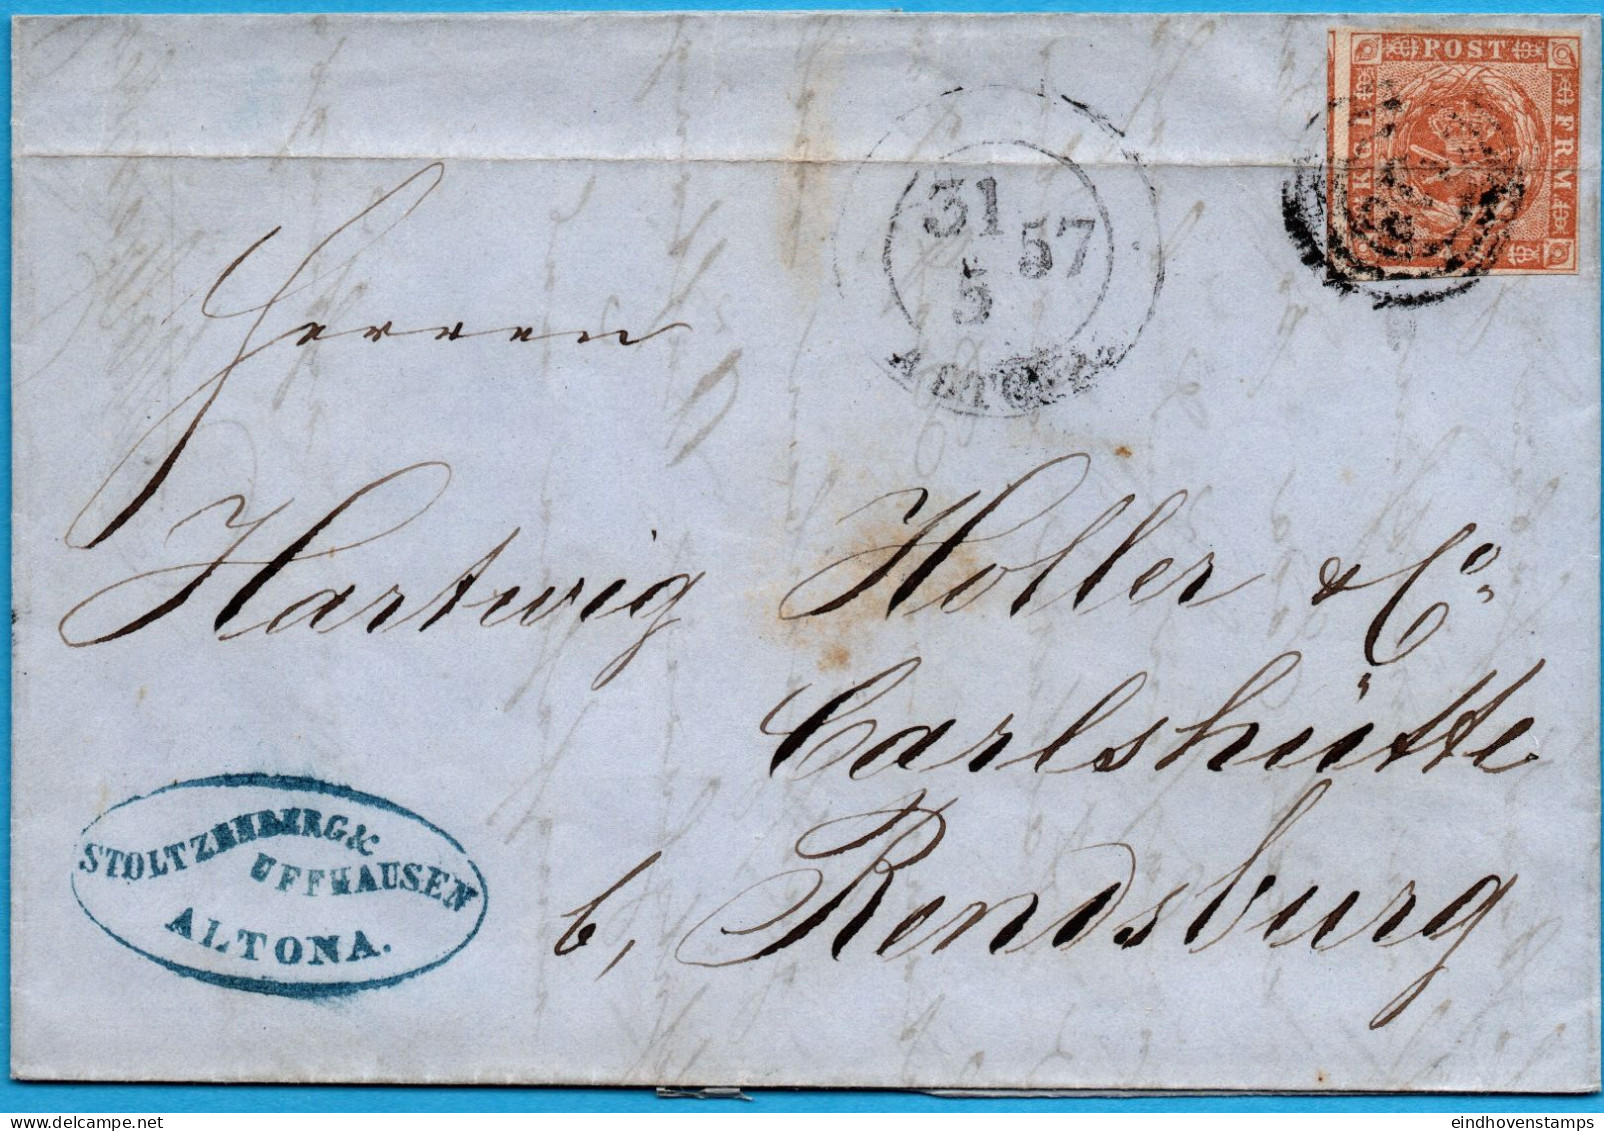 POST
FRM
KGL
31
5 57
ALTONA
Herren
Hartwig Holler & Co.
Carlshütte
b, Rendsburg
STOLTZENBERG &
UFFHAUSEN
ALTONA.
eindhovenstamps